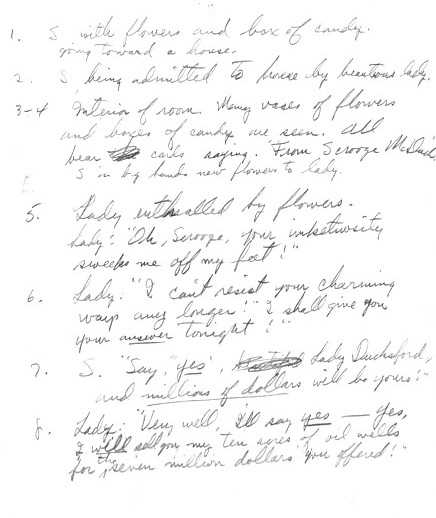 1. S with flowers and box of candy.
going toward a house.
2. S. being admitted to house by beauteous lady.
3-4 Interior of room. Many vases of flowers
and boxes of candy are seen. All
bear cards saying. "From Scrooge McDuck
S in bg hands new flowers to lady.
5. Lady enthralled by flowers.
Lady: "Oh, Scrooge, your impetuosity
sweeps me off my feet!"
6. Lady: "I can't resist your charming
way any longer!" "I shall give you
your answer tonight!"
7. S. "Say, 'yes', Lady Ducksford,
and millions of dollars will be yours!"
8. Lady: "Very well, I'll say yes — yes,
I will sell you my ten acres of oil wells
for the seven million dollars you offered!"